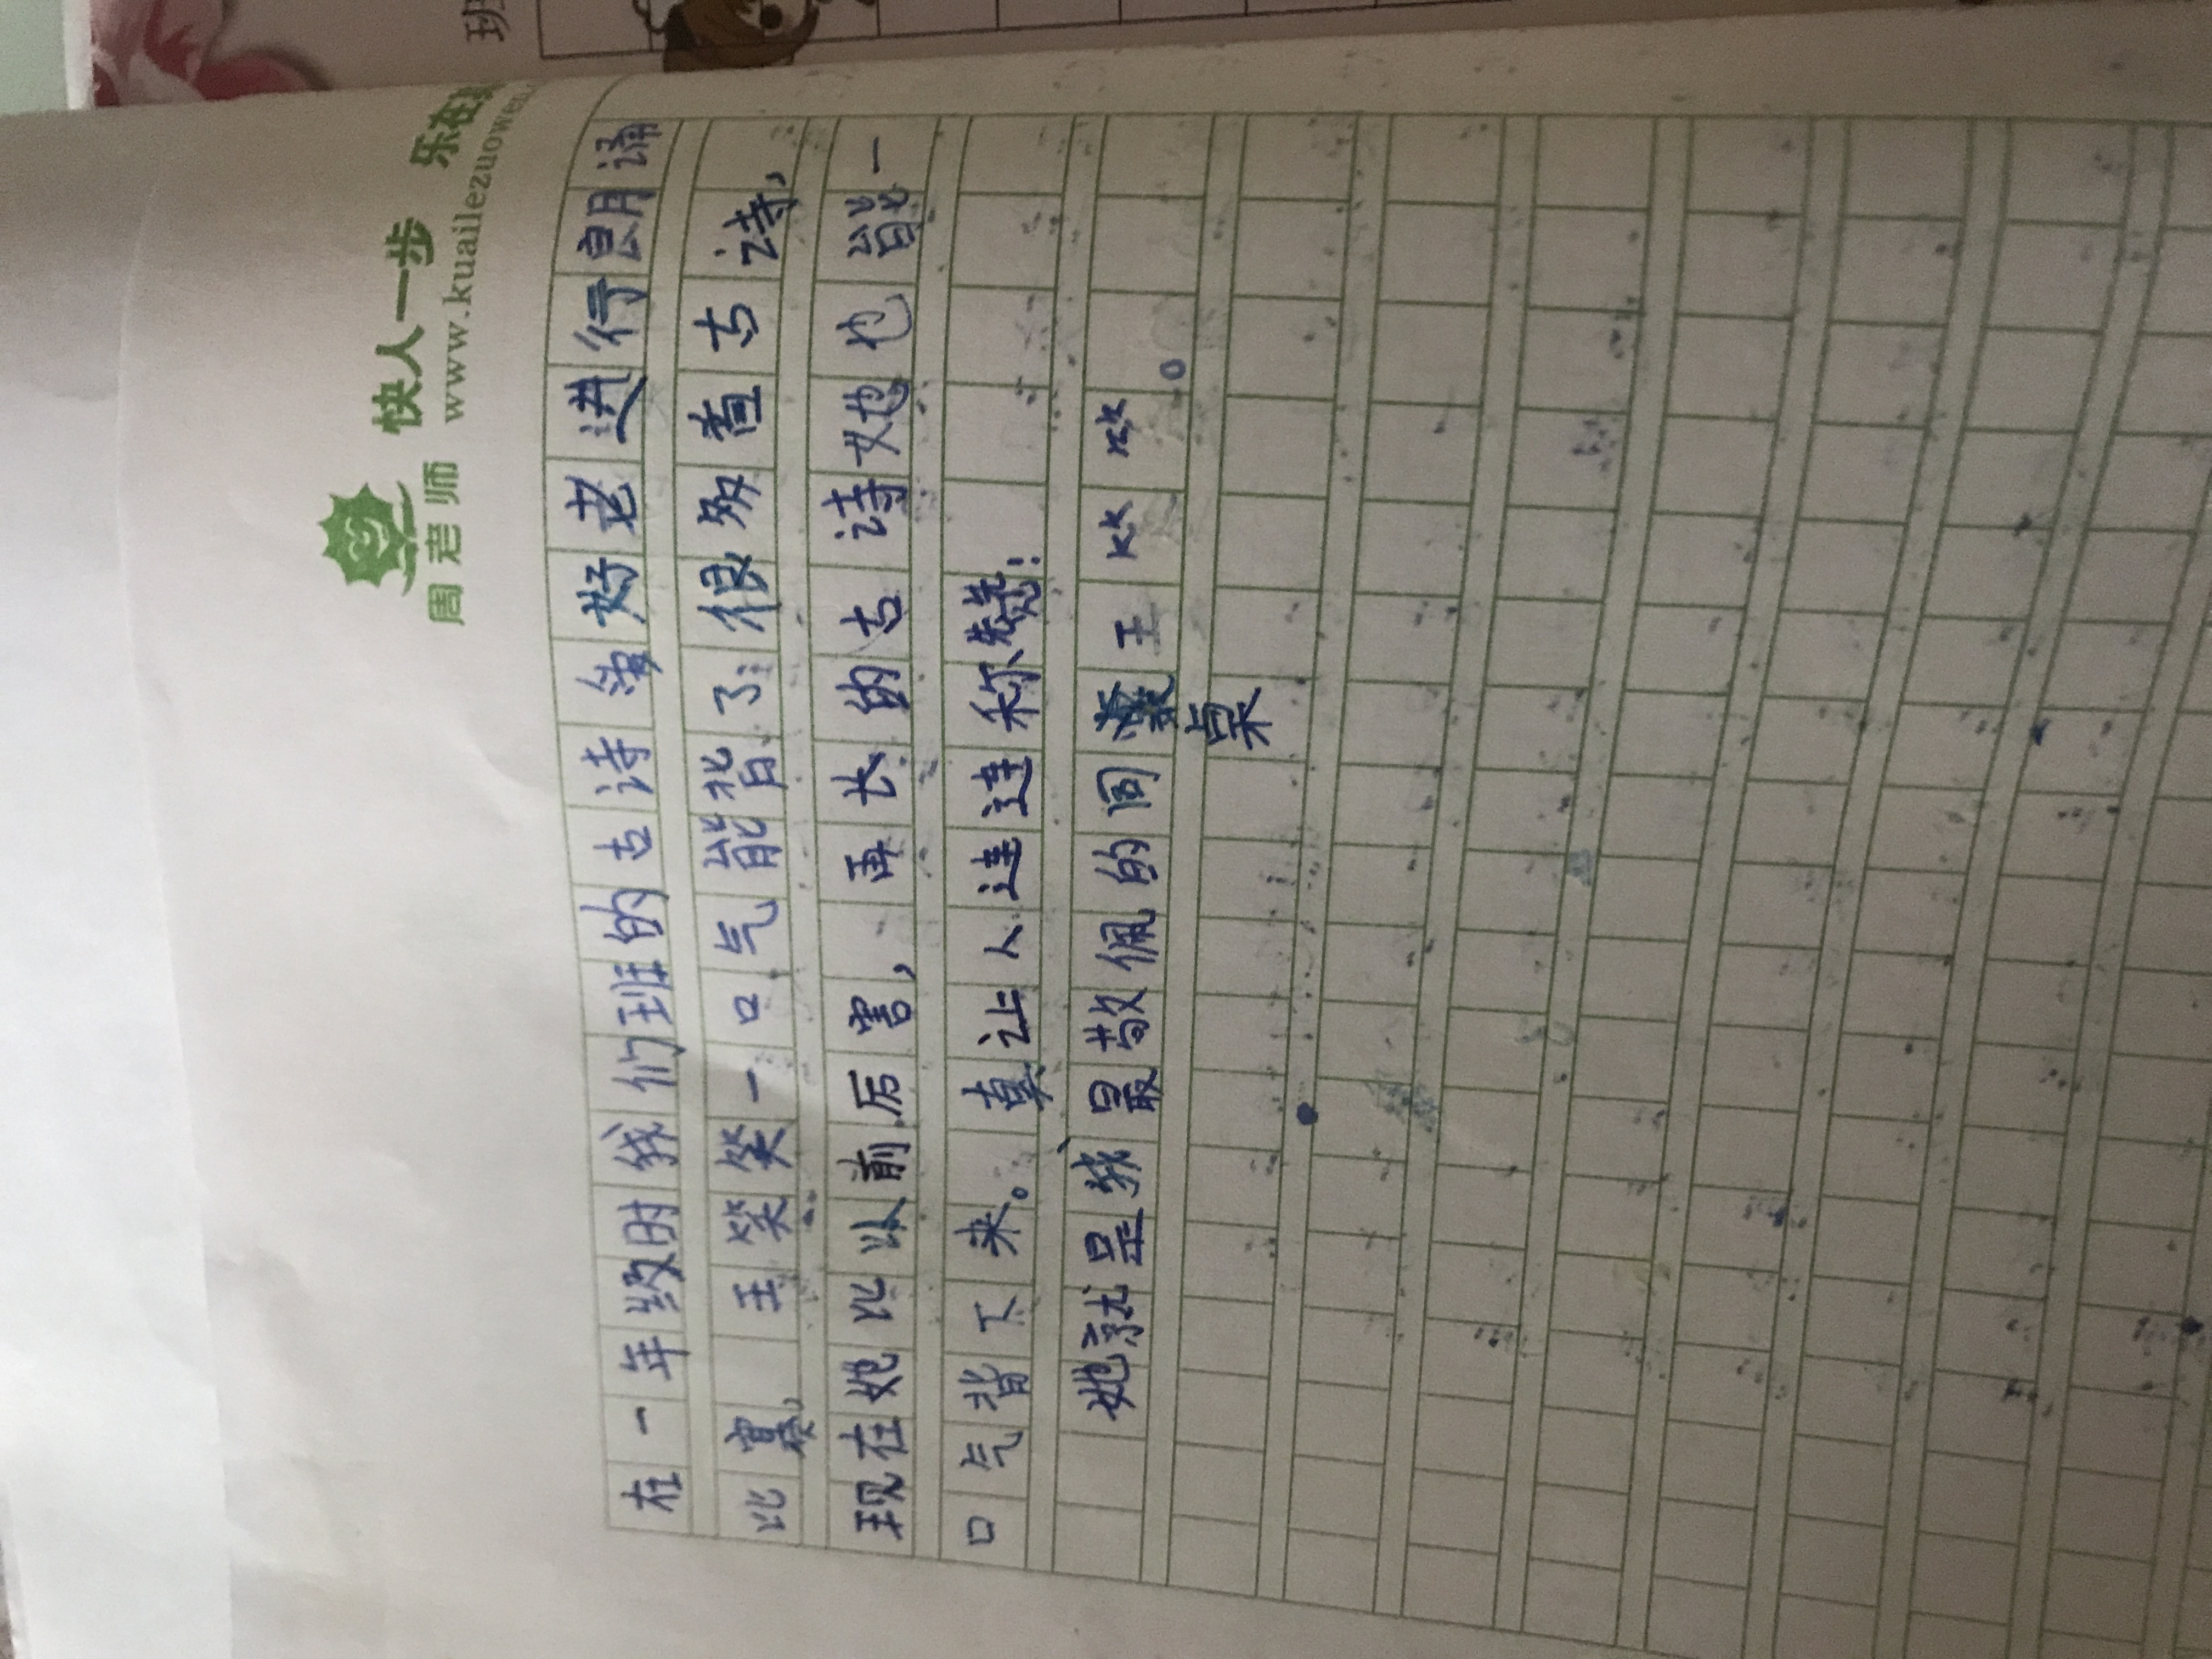 班
周老师 快人一步 乐在
www.kuailezuowen.
在一年级时我们班的古诗爱好老进行朗诵
比赛,王一口气能背了:很多首古诗,
现在她比以前厉害,再长的古诗她也能一
口气背下来。真让人连连称赞!
她就是我最敬佩的同王。
桌